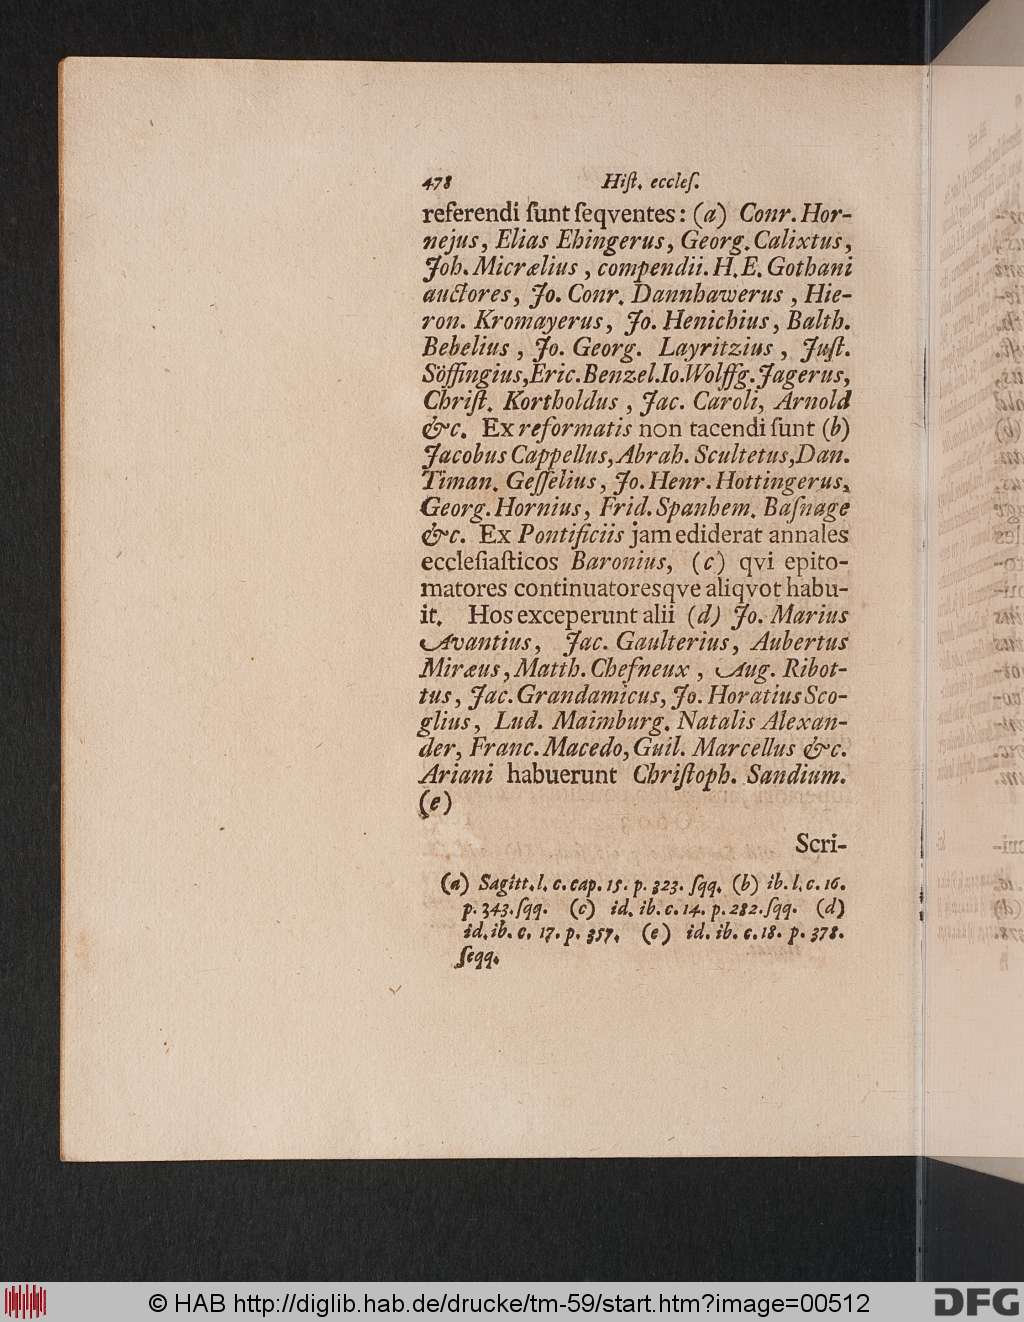 478 Hiſt. eccleſ.
referendi ſunt ſeqventes: (a) Conr. Hor-
nejus, Elias Ehingerus, Georg. Calixtus,
Joh. Micrælius, compendii. H. E. Gothani
auctores, Jo. Conr. Dannhawerus, Hie-
ron. Kromayerus, Jo. Henichius, Balth.
Bebelius, Jo. Georg. Layritzius, Juſt.
Söffingius, Eric. Benzel. Io. Wolffg. Jagerus,
Chriſt. Kortholdus, Jac. Caroli, Arnold
&c. Ex reformatis non tacendi ſunt (b)
Jacobus Cappellus, Abrah. Scultetus, Dan.
Timan. Geſſelius, Jo. Henr. Hottingerus,
Georg. Hornius, Frid. Spanhem. Baſnage
&c. Ex Pontificiis jam ediderat annales
eccleſiaſticos Baronius, (c) qvi epito-
matores continuatoresqve aliqvot habu-
it. Hos exceperunt alii (d) Jo. Marius
Avantius, Jac. Gaulterius, Aubertus
Miræus, Matth. Chefneux, Aug. Ribot-
tus, Jac. Grandamicus, Jo. Horatius Sco-
glius, Lud. Maimburg. Natalis Alexan-
der, Franc. Macedo, Guil. Marcellus &c.
Ariani habuerunt Chriſtoph. Sandium.
(e)
Scri-
(a) Sagitt. l. c. cap. 15. p. 323. ſqq. (b) ib. l. c. 16.
p. 343. ſqq. (c) id. ib. c. 14. p. 282. ſqq. (d)
id. ib. c. 17. p. 357. (e) id. ib. c. 18. p. 378.
ſeqq.
© HAB http://diglib.hab.de/drucke/tm-59/start.htm?image=00512
DFG